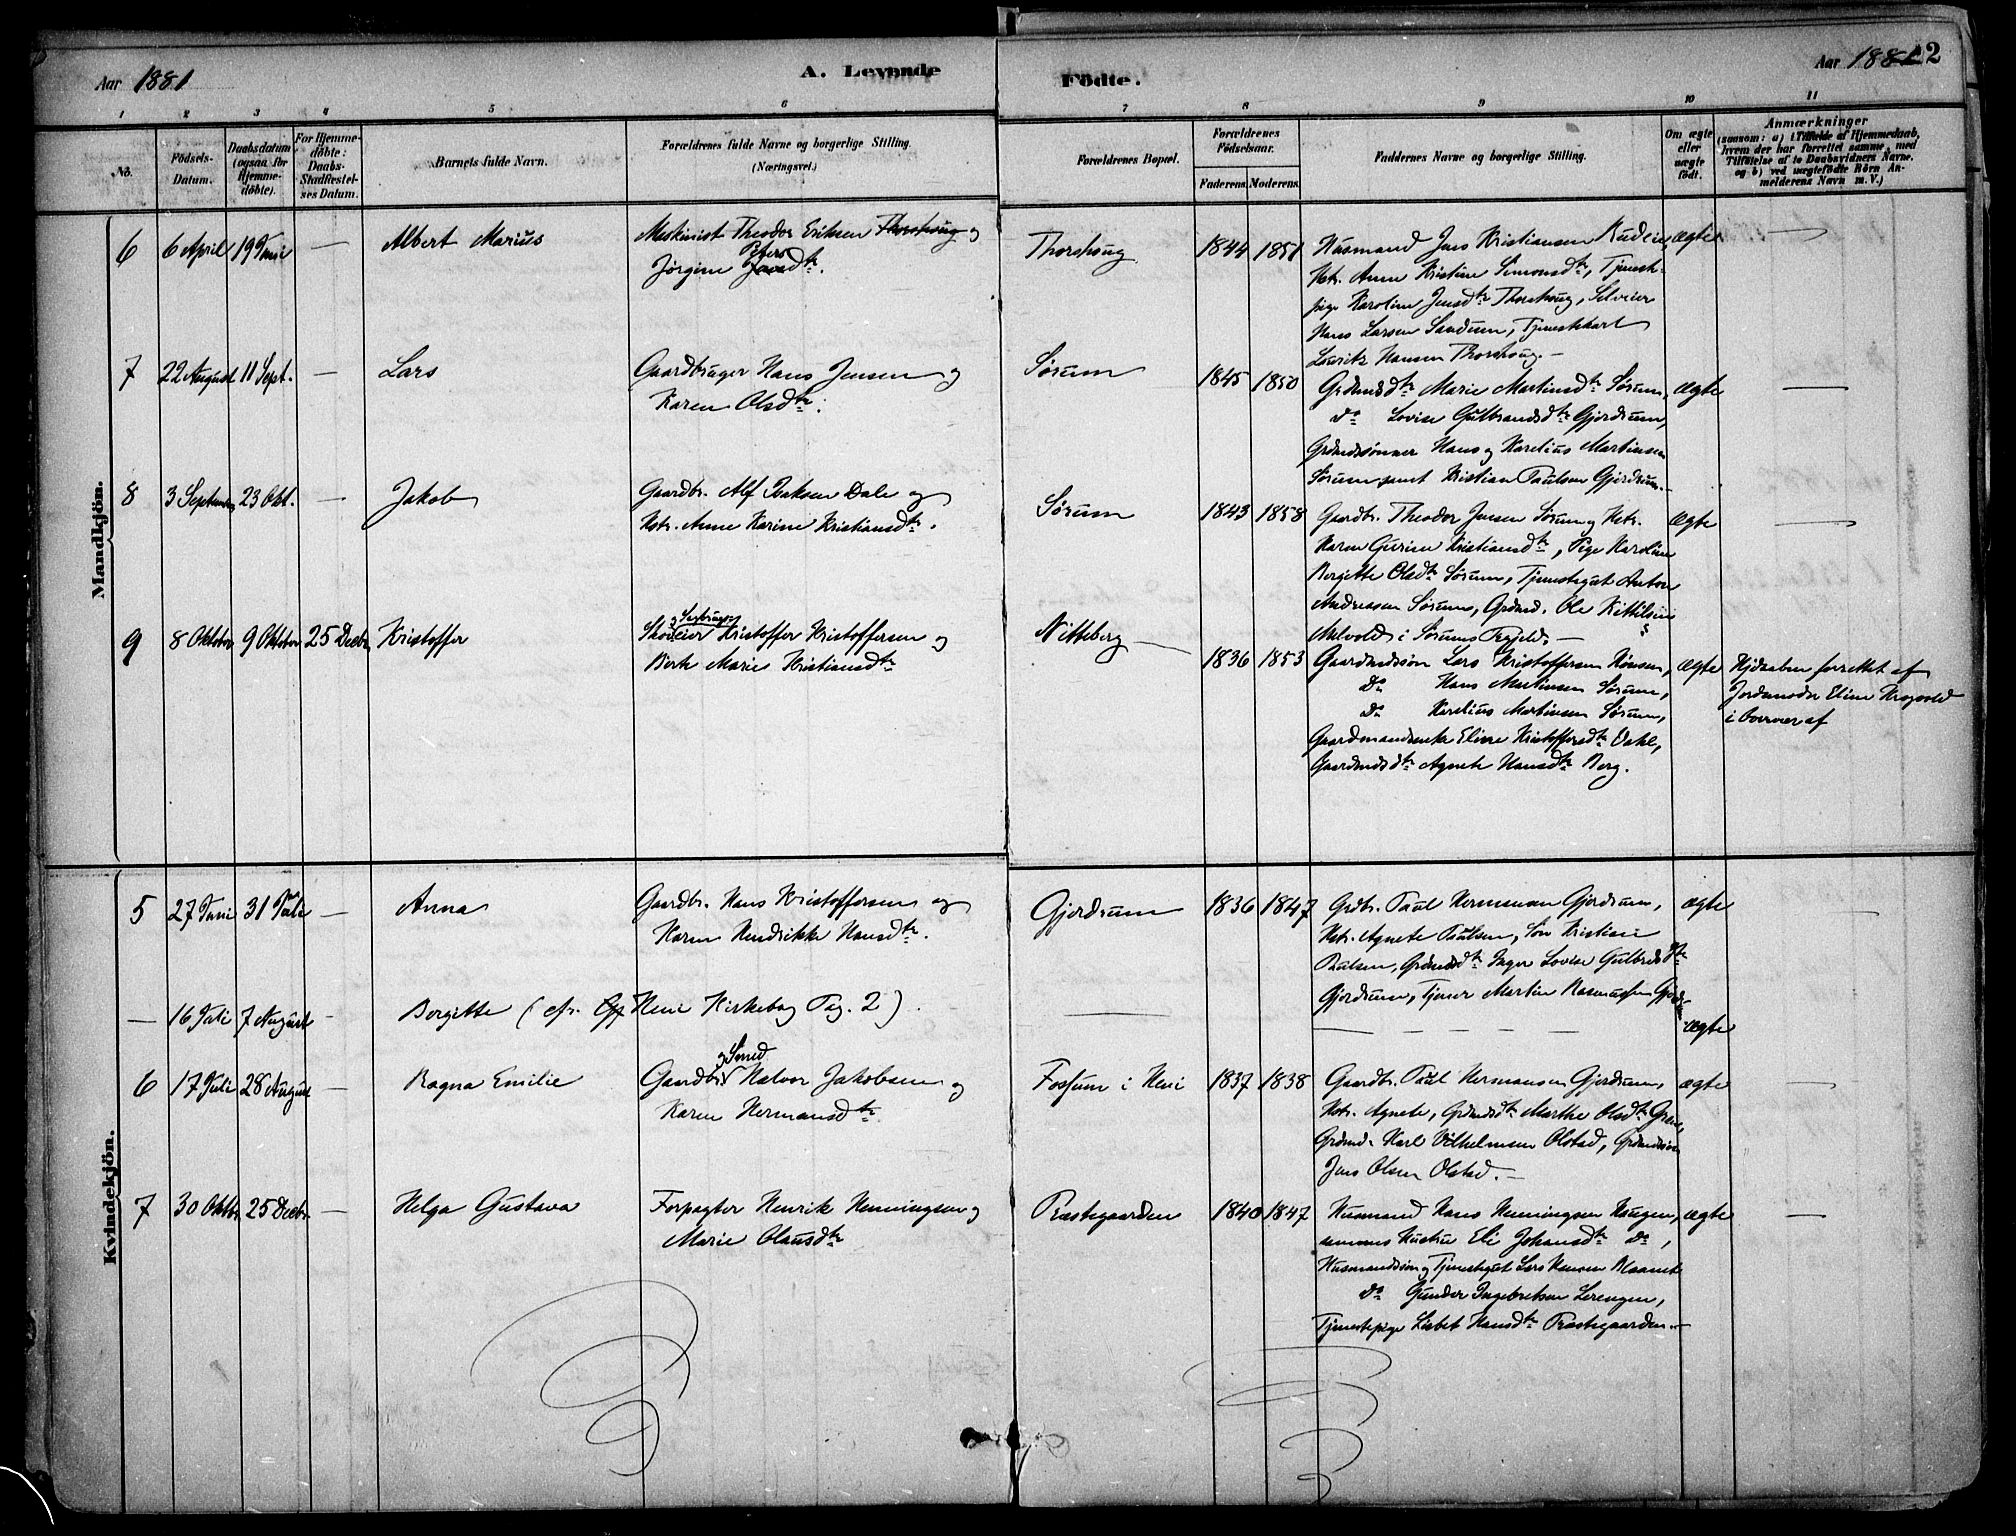 Aar 1881
A. Levende
Födte.
Aar 1881
2
1 2 3 4 5 6 7 8 9 10 11
No.
Födsels-
Datum.
Daabsdatum
(ogsaa for
Hjemme-
döbte).
For Hjemme-
döbte:
Daabs-
Stadfæstel-
ses Datum.
Barnets fulde Navn.
Forældrenes fulde Navne og borgerlige Stilling.
(Næringsvei.)
Forældrenes Bopæl.
Forældrenes
Födselsaar.
Faderens. Moderens.
Faddernes Navne og borgerlige Stilling.
Om ægte
eller
uægte
födt.
Anmærkninger
(saasom: a) i Tilfælde af Hjemmedaab,
hvem der har forrettet samme, med
Tilföielse af to Daabsvidners Navne.
og b) ved uægtefödte Börn An-
melderens Navn m. V.)
Mandkjön.
6 6 April 19 Juni — Albert Marius
Maskinist Theodor Eriksen Thorshoug og
Peters
Jørgine Jensdtr.
Thorshoug
1844 1851
Husmand Jens Kristiansen Rudein
Hstr. Anne Kristine Simonsdtr, Tjeneste-
pige Karoline Jensdtr Thorshoug, Selveier
Hans Larsen Sandum, Tjenestekarl
Lauritz Hansen Thorshoug. —
ægte —
7 22 August 11 Sept. — Lars
Gaardbruger Hans Jensen og
Karen Olsdtr.
Sørum
1845 1850
Grdmdsdtr Marie Martinsdtr Sørum,
do Lovise Gulbrandsdtr Gjordrum,
Grdmdssønner Hans og Karelius Martinsen
Sørum samt Kristian Paulsen Gjordrum.—
ægte —
8 3 September 23 Okt. — Jakob
Gaardbr. Alf Isaksen Dale og
Hstr. Anne Karine Kristiansdtr.
Sørum
1843 1858
Gaardbr. Theodor Jensen Sørum og Hstr.
Karen Gurine Kristiansdtr, Pige Karoline
Bergitte Olsdtr Sørum, Tjenestegut Anton
Andreasen Sørum, Grdmd. Ole Kittilsen
Melvold i Sørums Prgjeld. —
ægte —
9 8 Oktober 9 Oktober 25 Decbr. Kristoffer
Skoleier Kristoffer Kristoffersen og
Berte Marie Kristiansdtr
Nitteberg —
1836 1853
Gaardmdssøn Lars Kristoffersen Kønsen,
Do Hans Martinsen Sørum,
Do Karelius Martinsen Sørum,
Gaardmandsenke Eline Kristoffersdtr Dahl,
Gaardmdsdtr Agnete Hansdtr Berg.
ægte
Hjdaaben forrettet af
Jordemoder Eline Krogvold
i Overvær af
Kvindekjön.
5 27 Juni 31 Juli — Anna
Gaardbr. Hans Kristoffersen og
Karen Hendrikke Hansdtr.
Gjordrum
1836 1847
Grdbr. Paul Hermansen Gjordrum,
Hstr. Agnete Paulsen, Søn Kristian
Paulsen, Grdmdsdtr Inger Lovise Gulbrdsdtr
Gjordrum, Tjener Martin Rasmussen Gjordr.
ægte —
— 16 Juli 7 August — Bergitte (cfr. Heni Kirkebog Pag. 2).
— — — — — ægte
6 17 Juli 28 August — Ragna Emilie
og Smed
Gaardbr. Halvor Jakobsen og
Karen Hermansdtr.
Fossum i Heni
1837 1838
Gaardbr. Paul Hermansen Gjordrum,
Hstr. Agnete, Grdmdsdtr Marthe Olsdtr
Grdmd. Karl Vilhelmsen Olstad, Grdmdssøn
Jens Olsen Olstad. —
ægte —
7 30 Oktbr. 25 Decbr. — Helga Gustava
Forpagter Henrik Henningsen og
Marie Olausdtr
Præstegaarden
1840 1847
Husmand Hans Henningsen Haugen,
sammes Hustru Eli Johansdtr Do,
Husmandssøn og Tjenestegut Lars Hansen Blaamit
Do Gunder Ingebretsen Lerengen,
Tjenestepige Lisbet Hansdtr Præstegaarden.—
ægte —